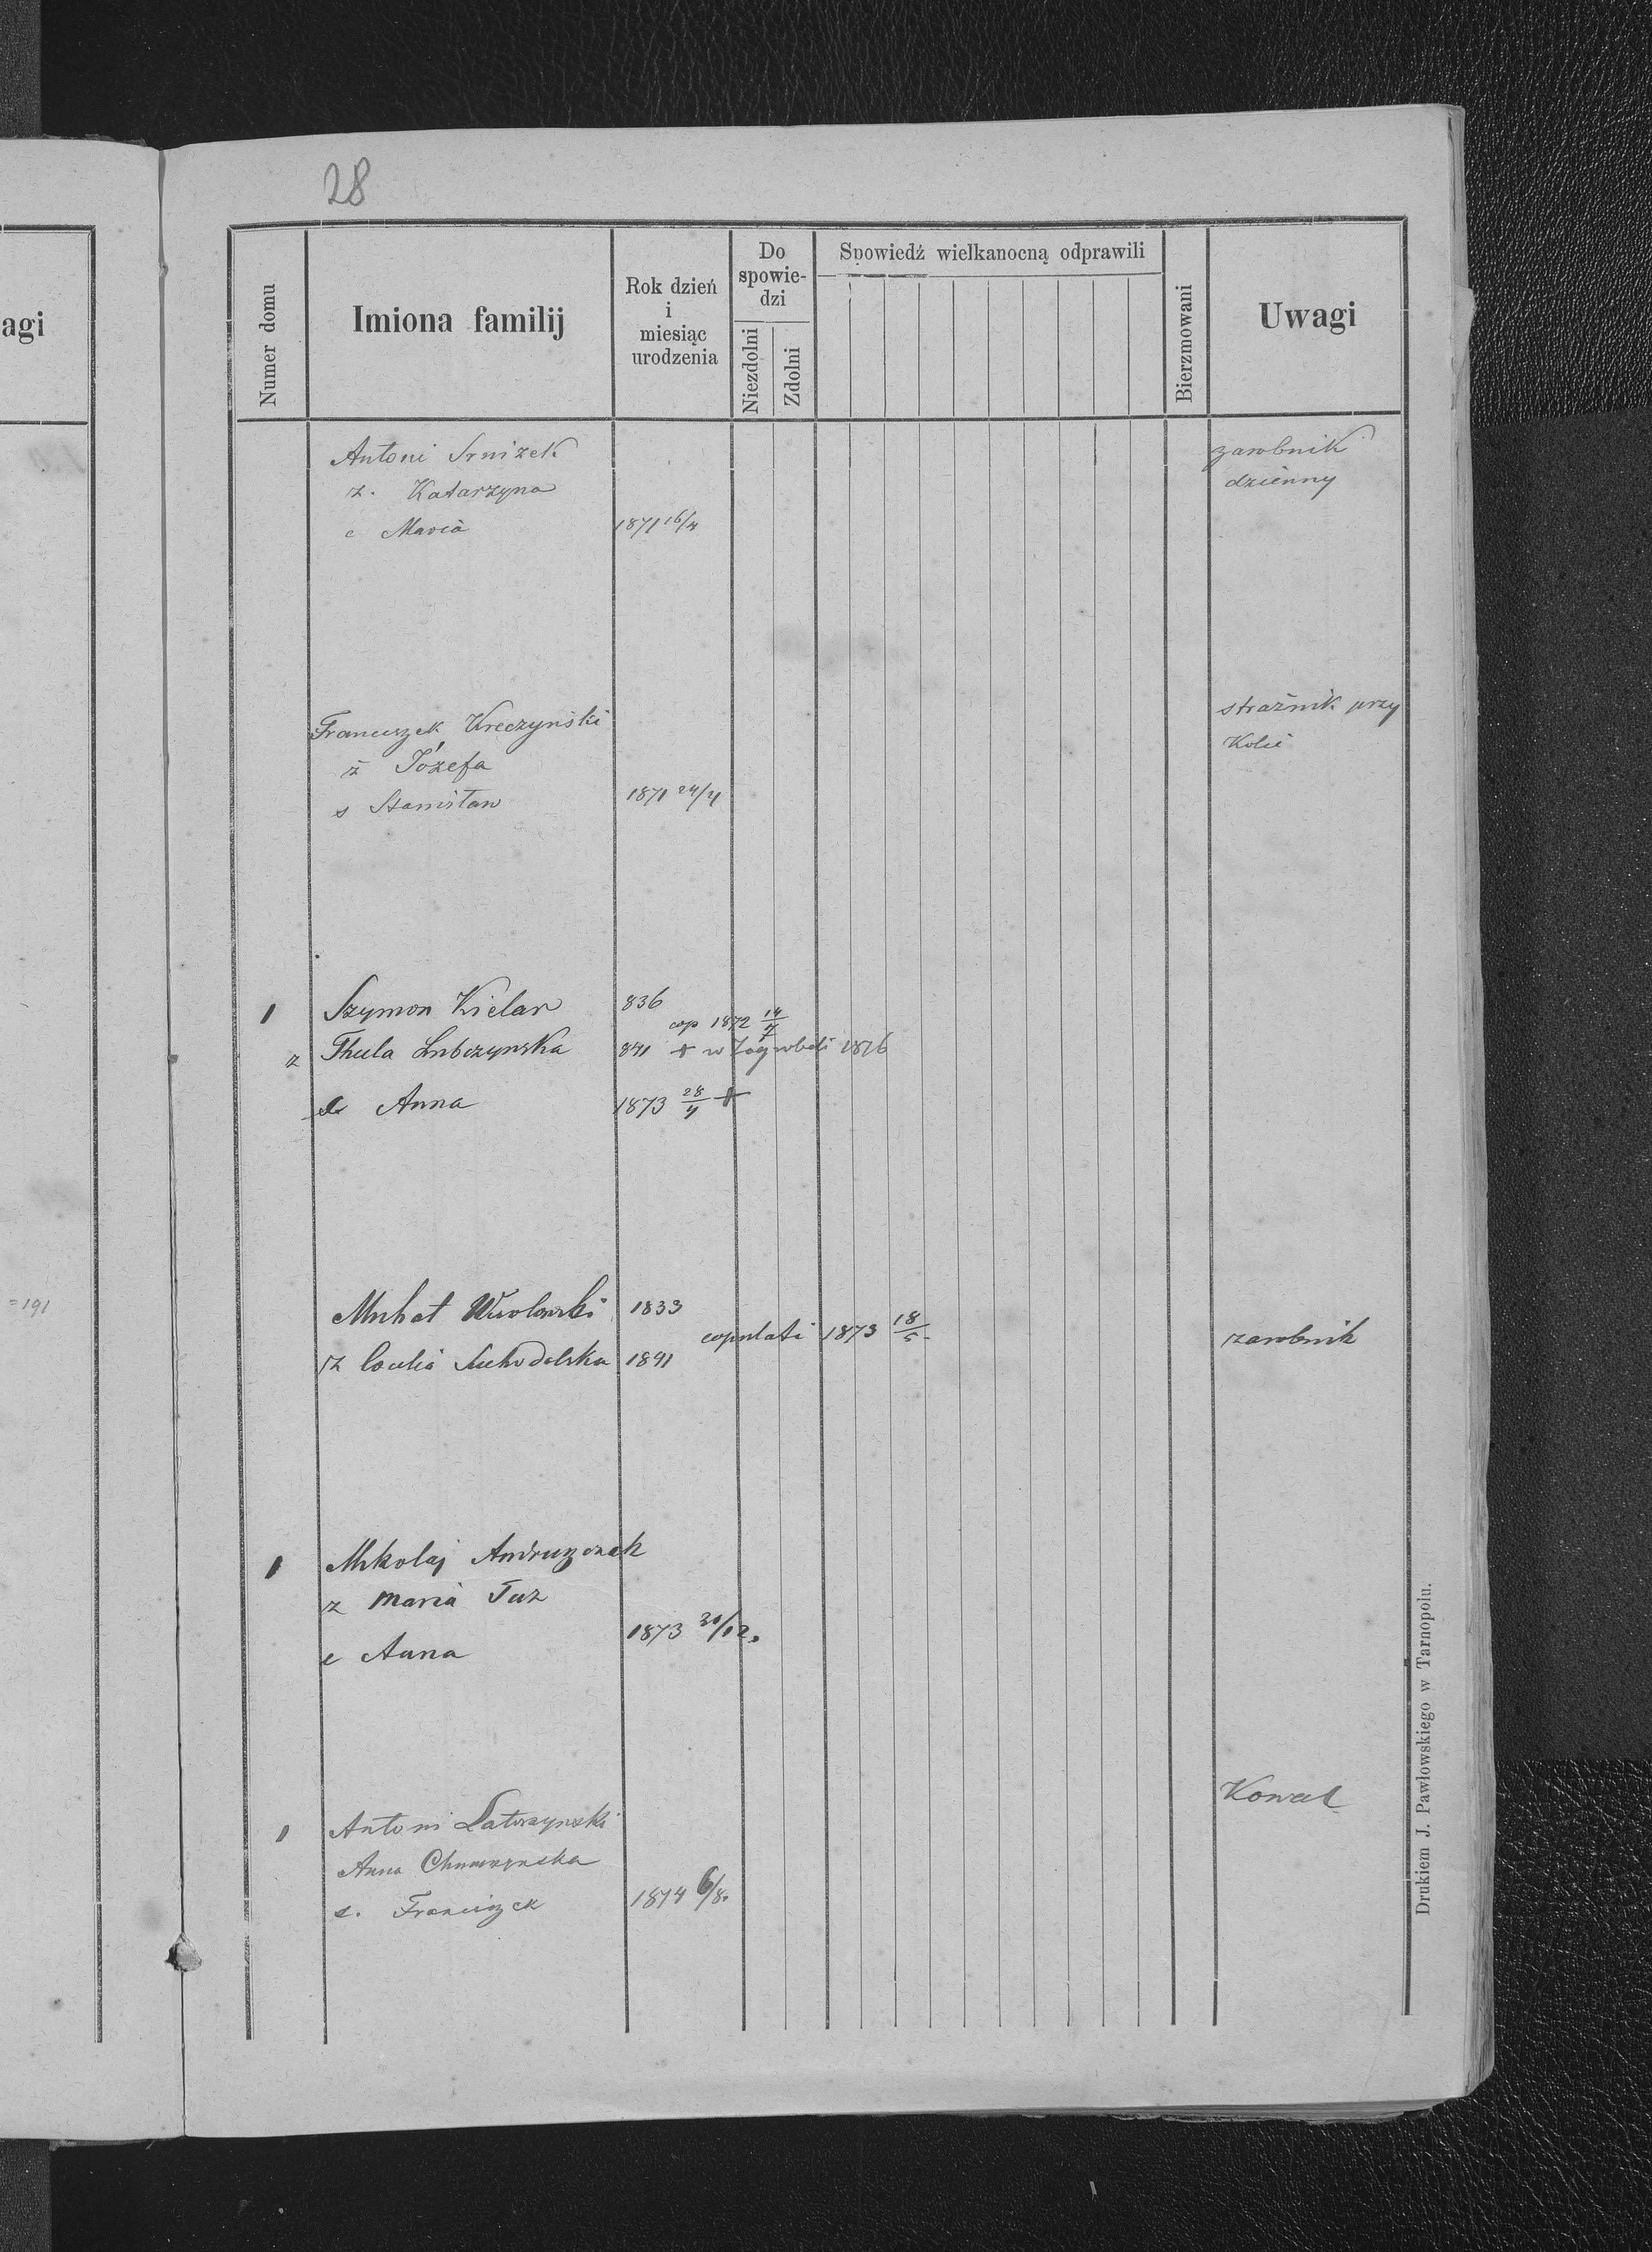 28
agi
Numer domu
Imiona familij
Rok dzień
i
miesiąc
urodzenia
Do
spowie-
dzi
Niezdolni
Zdolni
Spowiedź wielkanocną odprawili
Bierzmowani
Uwagi
Antoni zarobnik
z. Katarzyna dzienny
c Maria 1871 16/
Franciszek Kreczyński strażnik przy
ż Józefa Kolei
s Stanisław 1871 24/
1 Szymon Kielar 836
cop 1872 14/7
z Thecla Lubczynska 841 + w 1876
c Anna 1873 28/4 +
=191
Michał 1833
copulati 1873 18/5 zarobnik
z Suchodolska 1841
1 Mikolaj Andruszczak
z Maria Tuz
1873 30/12.
c Anna
Kowal
1 Antoni Latoszynski
Anna
s. Franciszek 1874 6/8.
Drukiem J. Pawłowskiego w Tarnopolu.